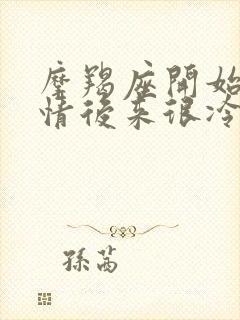 摩羯座開始
情後來很冷
孫茜